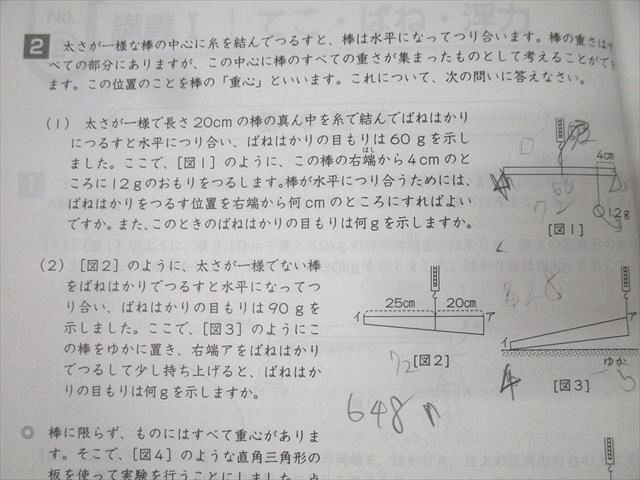 No.
講義 I てこ・ばね・浮力
2 太さが一様な棒の中心に糸を結んでつるすと、棒は水平になってつり合います。棒の重さはす
べての部分にありますが、この中心に棒のすべての重さが集まったものとして考えることができ
ます。この位置のことを棒の「重心」といいます。これについて、次の問いに答えなさい。
(1) 太さが一様で長さ20cmの棒の真ん中を糸で結んでばねはかり
につるすと水平につり合い、ばねはかりの目もりは60gを示し
はし
ました。ここで、[図1]のように、この棒の右端から4cmのと
ころに12gのおもりをつるします。棒が水平につり合うためには、
ばねはかりをつるす位置を右端から何cmのところにすればよい
ですか。また、このときのばねはかりの目もりは何gを示しますか。
4cm
60
72
12g
[図1]
(2) [図2]のように、太さが一様でない棒
をばねはかりでつるすと水平になってつ
り合い、ばねはかりの目もりは90gを
示しました。ここで、[図3]のようにこ
の棒をゆかに置き、右端アをばねはかり
でつるして少し持ち上げると、ばねはか
りの目もりは何gを示しますか。
25cm 20cm
イ ア
72
[図2]
648
328
イ ア
ゆか
[図3]
◎ 棒に限らず、ものにはすべて重心がありま
す。そこで、[図4]のような直角三角形の
板を使って実験を行うことにしました。点